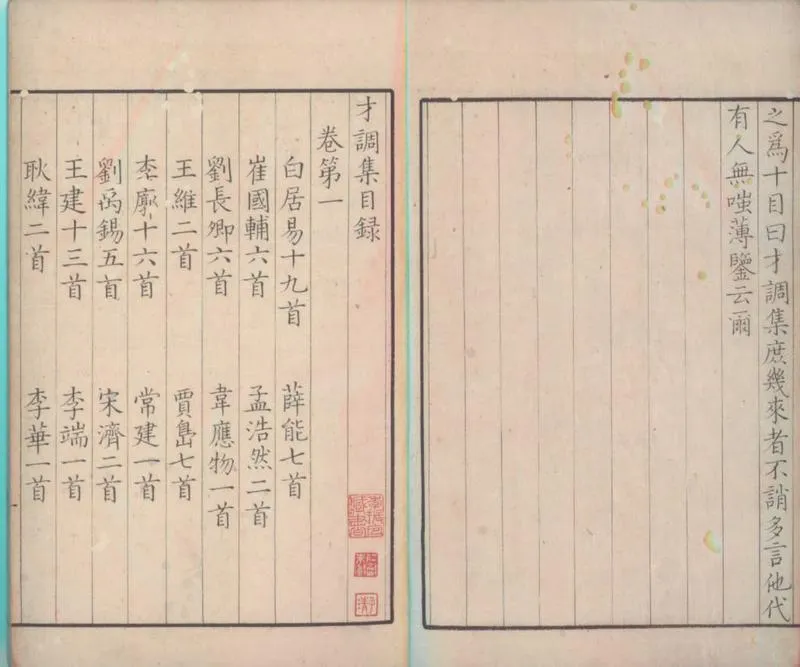 之爲十目曰才調集庶幾來者不誚多言他代
有人無嗤薄鑒云爾
才調集目録
卷第一
白居易十九首 薛能七首
崔國輔六首 孟浩然二首
劉長卿六首 韋應物一首
王維二首 賈島七首
李廓十六首 常建一首
劉禹錫五首 宋濟二首
王建十三首 李端一首
耿緯二首 李華一首